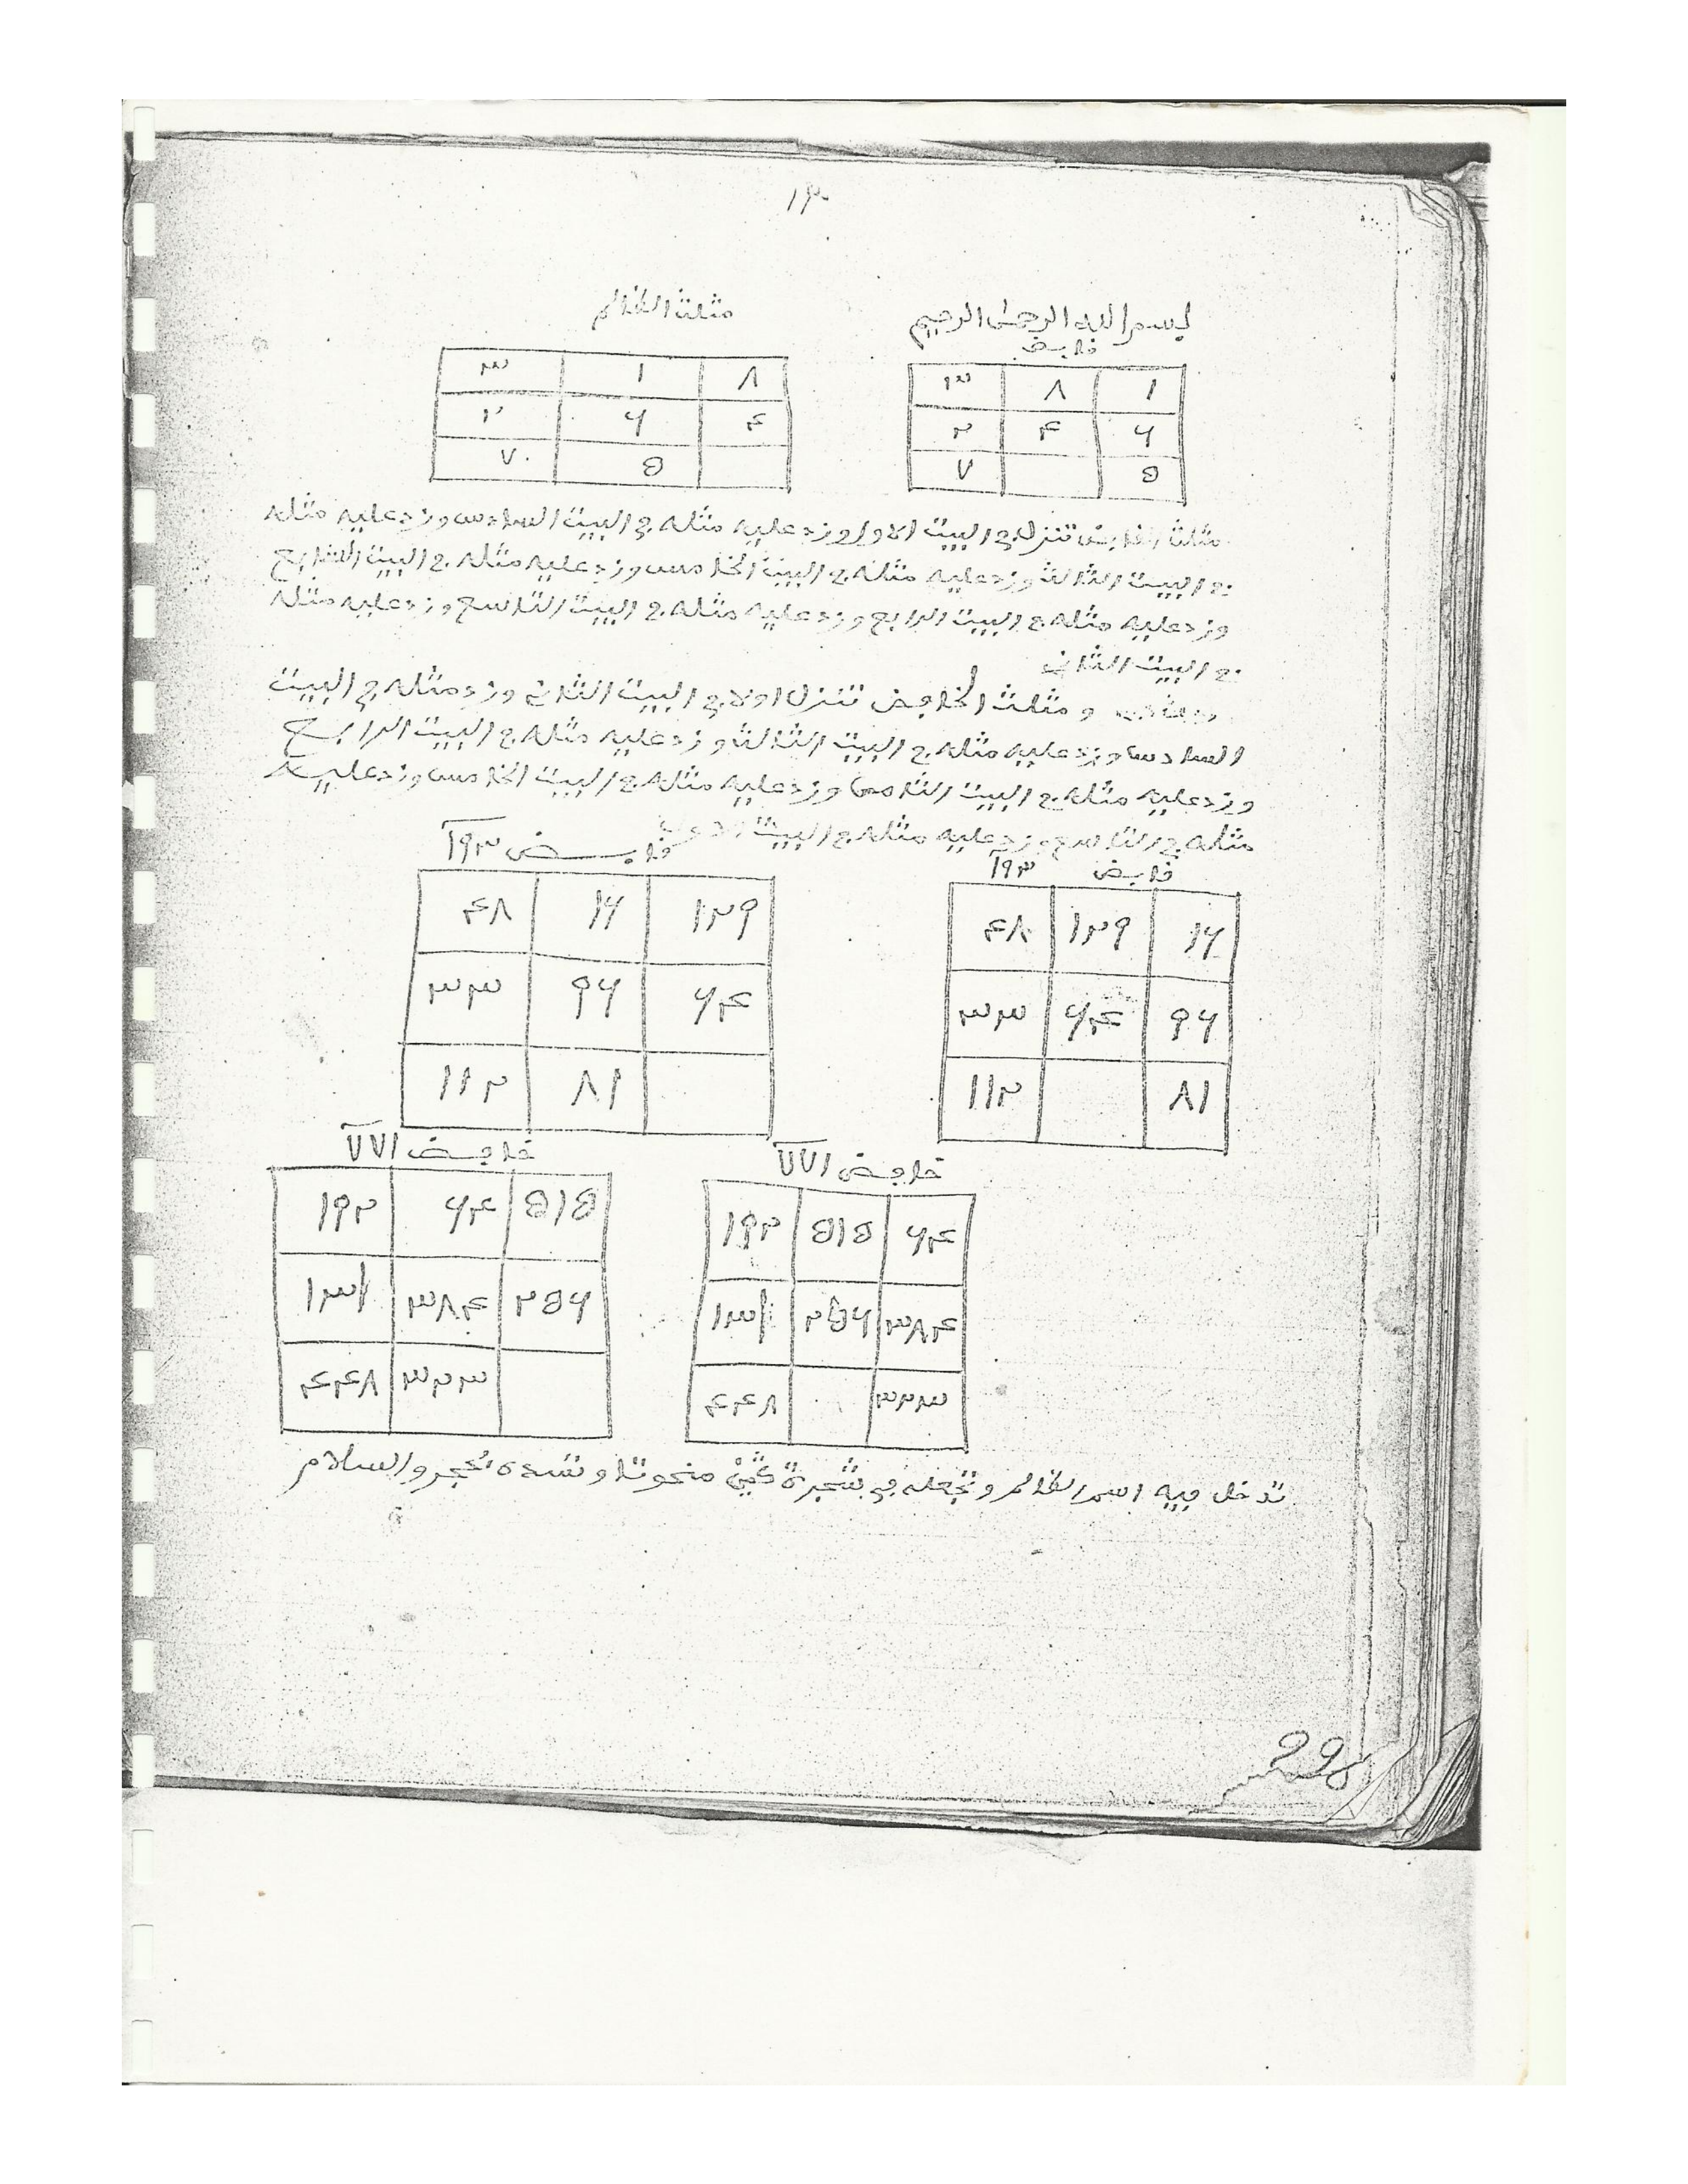 ١٣
بسم الله الرحمن الرحيم
قابض
١ ٨ ٣
٦ ٤ ٢
٥ ٧
مثلث الظالم
٨ ١ ٣
٤ ٦ ٢
٥ ٧
مثلث القابض تنزل في البيت الاول وزد عليه مثله في البيت السادس وزد عليه مثله
في البيت الثالث وزد عليه مثله في البيت الخامس وزد عليه مثله في البيت
وزد عليه مثله في البيت الرابع وزد عليه مثله في البيت التاسع وزد عليه مثله
في البيت الثاني
و مثلث الخافض تنزل اولا في البيت الثاني وزد مثله في البيت
السادس وزد عليه مثله في البيت الثالث وزد عليه مثله في البيت الرابع
وزد عليه مثله في البيت الثامن وزد عليه مثله في البيت الخامس وزد عليه
مثله في التاسع وزد عليه مثله في البيت
قابض ١٩٣
١٦ ١٢٩ ٤٨
٩٦ ٦٤ ٣٣
٨١ ١١٢
قابض ١٩٣
١٢٩ ١٦ ٤٨
٦٤ ٩٦ ٣٣
٨١ ١١٢
خافض ٧٧١
٦٤ ٥١٥ ١٩٢
٣٨٤ ٢٥٦ ١٣١
٣٢٣ ٤٤٨
خافض ٧٧١
٥١٥ ٦٤ ١٩٢
٢٥٦ ٣٨٤ ١٣١
٣٢٣ ٤٤٨
تدخل فيه اسم الظالم وتجعله في شجرة منحوتا وتسده بحجر والسلام
298